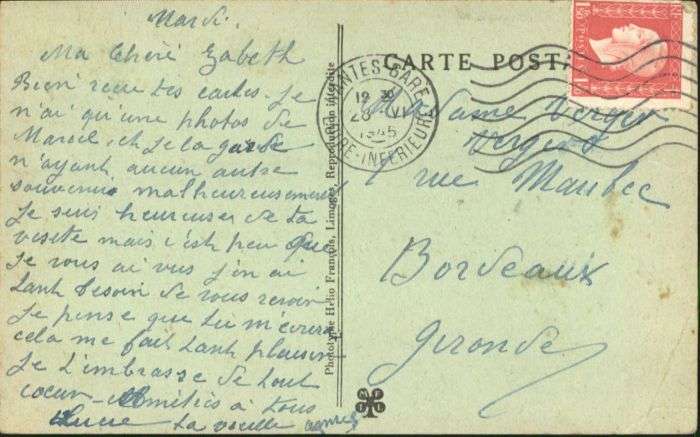 Mardi.
Ma Chère Zabeth
Bien reçu tes cartes. Je
n'ai qu'une photos de
Marcel, et je la garde
n'ayant aucun autre
souvenir malheureusement
Je suis heureuse de ta
visite mais c'est peu que
je vous ai vus j'en ai
tant besoin de vous revoir
Je pense que tu m'écriras
cela me fait tant plaisir
Je t'embrasse de tout
coeur amitiés à tous
Lucie La vieille
CARTE POSTA
NANTES-GARE
12 30
28 VI
1945
LOIRE-INFERIEURE
Madame Verger
Vergers
1 rue Maubec
Bordeaux
Gironde
Phototypie Hélio François, Limoges, Reproduction interdite